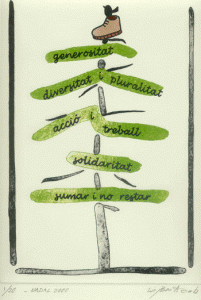 generositat
diversitat i pluralitat
acció i treball
solidaritat
sumar i no restar
- NADAL 2007